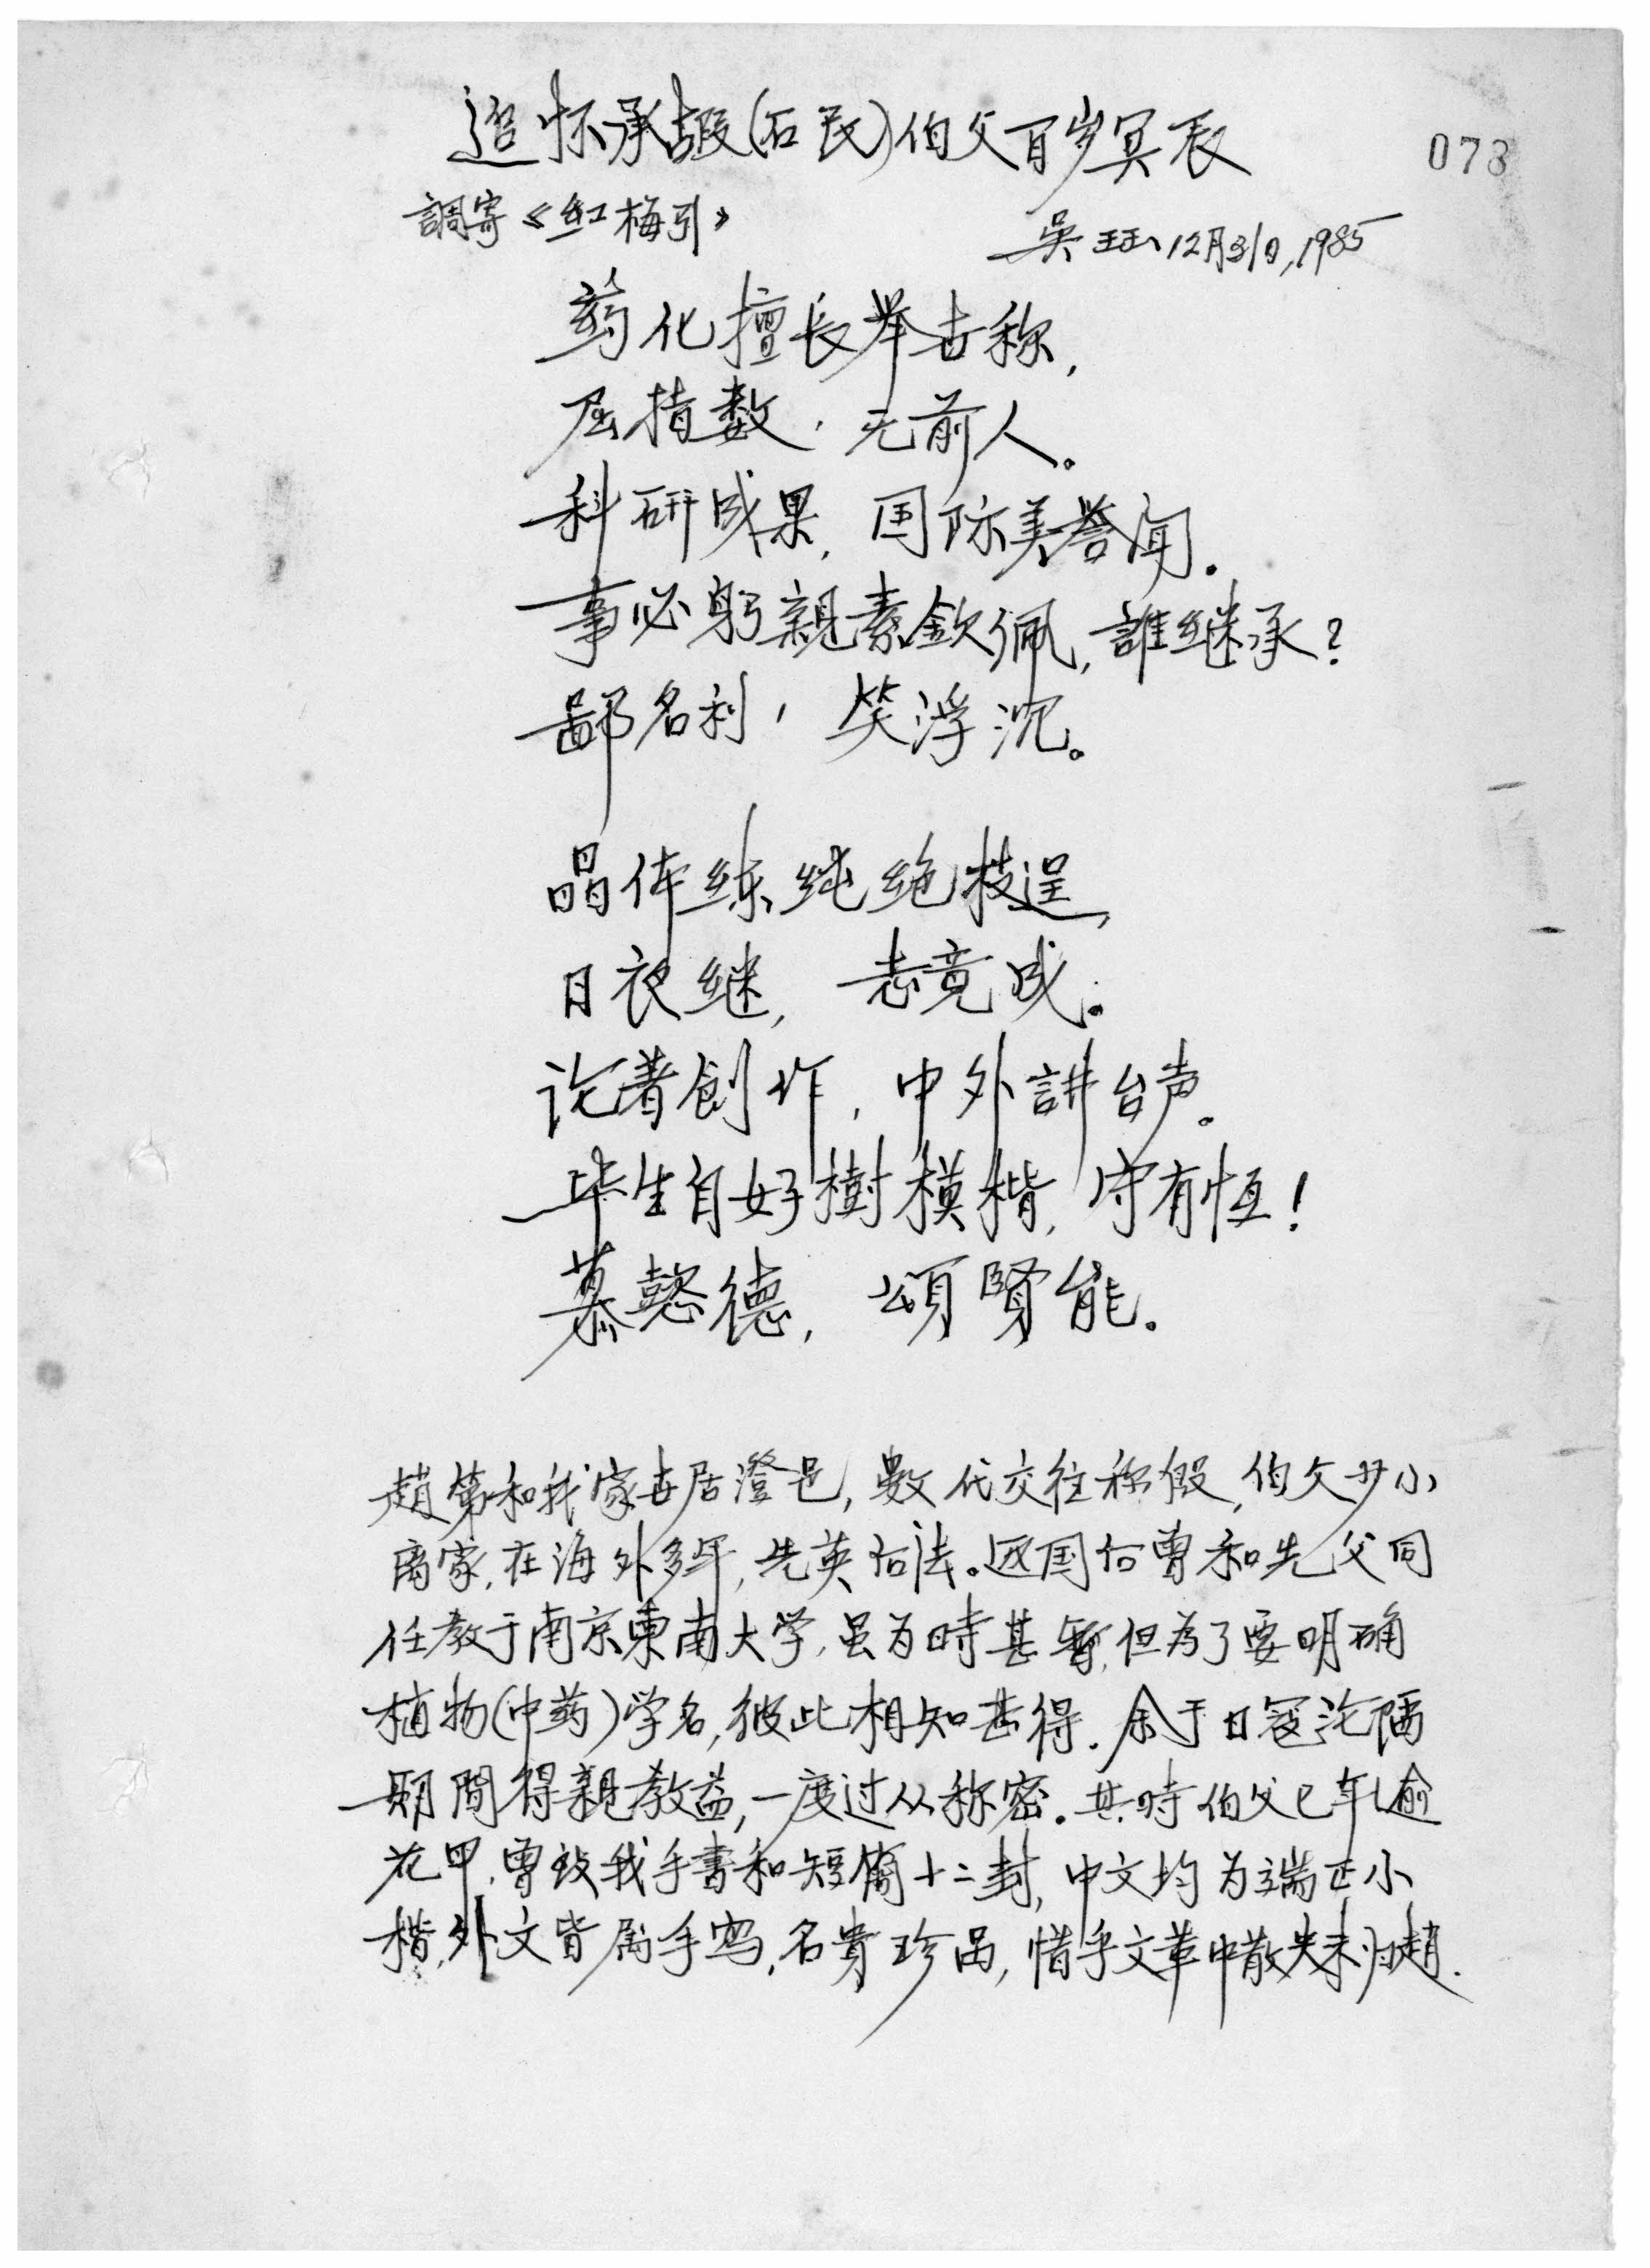 追怀承嘏(石民)伯父百岁冥辰
073
調寄《红梅引》
吴珏 12月31日,1985
药化擅長举世称,
屈指数,无前人。
科研成果,国际美誉闻。
事必躬親素欽佩,誰继承?
鄙名利,笑浮沉。
晶体练纯绝技逞,
日夜继,志竟成。
论著創作,中外講台声。
毕生自好樹模楷,守有恆!
慕懿德,頌賢能。
趙第和我家世居澄邑,数代交往称殷,伯父少小
离家,在海外多年,先英后法。返国后曾和先父同
任教于南京東南大学,虽为時甚暫,但为了要明确
植物(中药)学名,彼此相知甚得.余于日寇沦陷
期間得親教益,一度过从称密.其時伯父已年逾
花甲,曾致我手書和短简十二封,中文均为端正小
楷,外文皆属手写,名貴珍品,惜乎文革中散失未归趙.